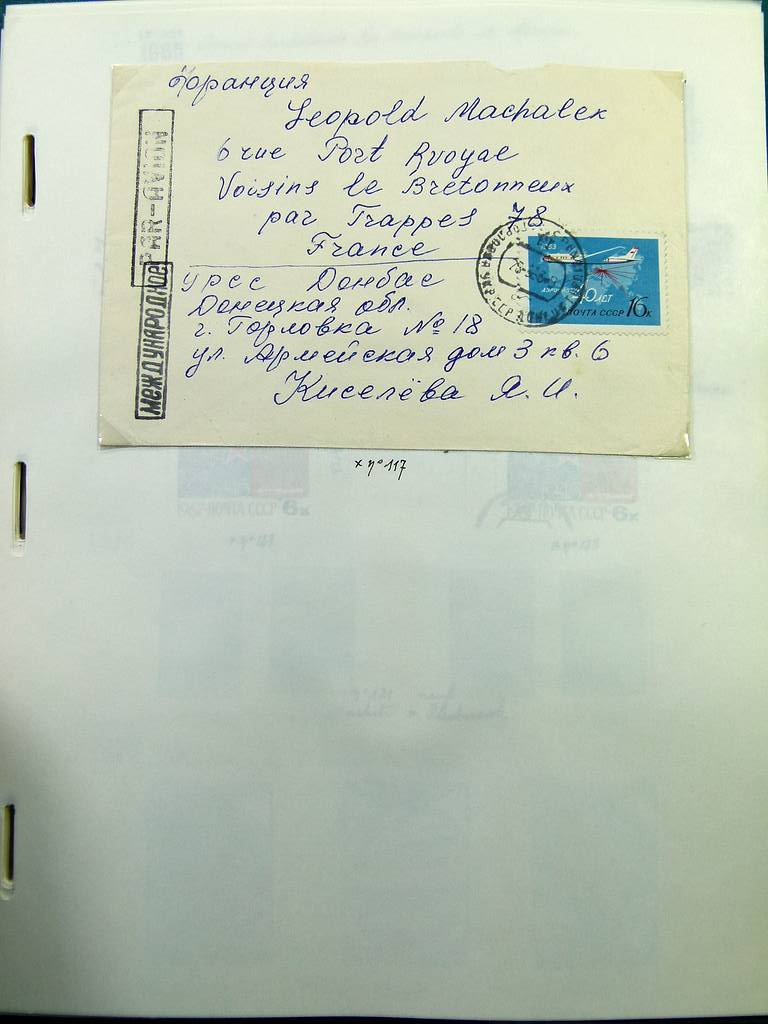 Франция
Leopold Machalek
6 rue Port Rvoyal
Voisins le Bretonneux
par Trappes 78
France
урсс Донбас
Донецкая обл.
г. Горловка № 18
ул. Армейская дом 3 кв. 6
Киселёва Я. И.
PAR-AVION
МЕЖДУНАРОДНОЕ
ЛЕТ
ПОЧТА СССР 16к
x n° 117
ПОЧТА СССР 6к